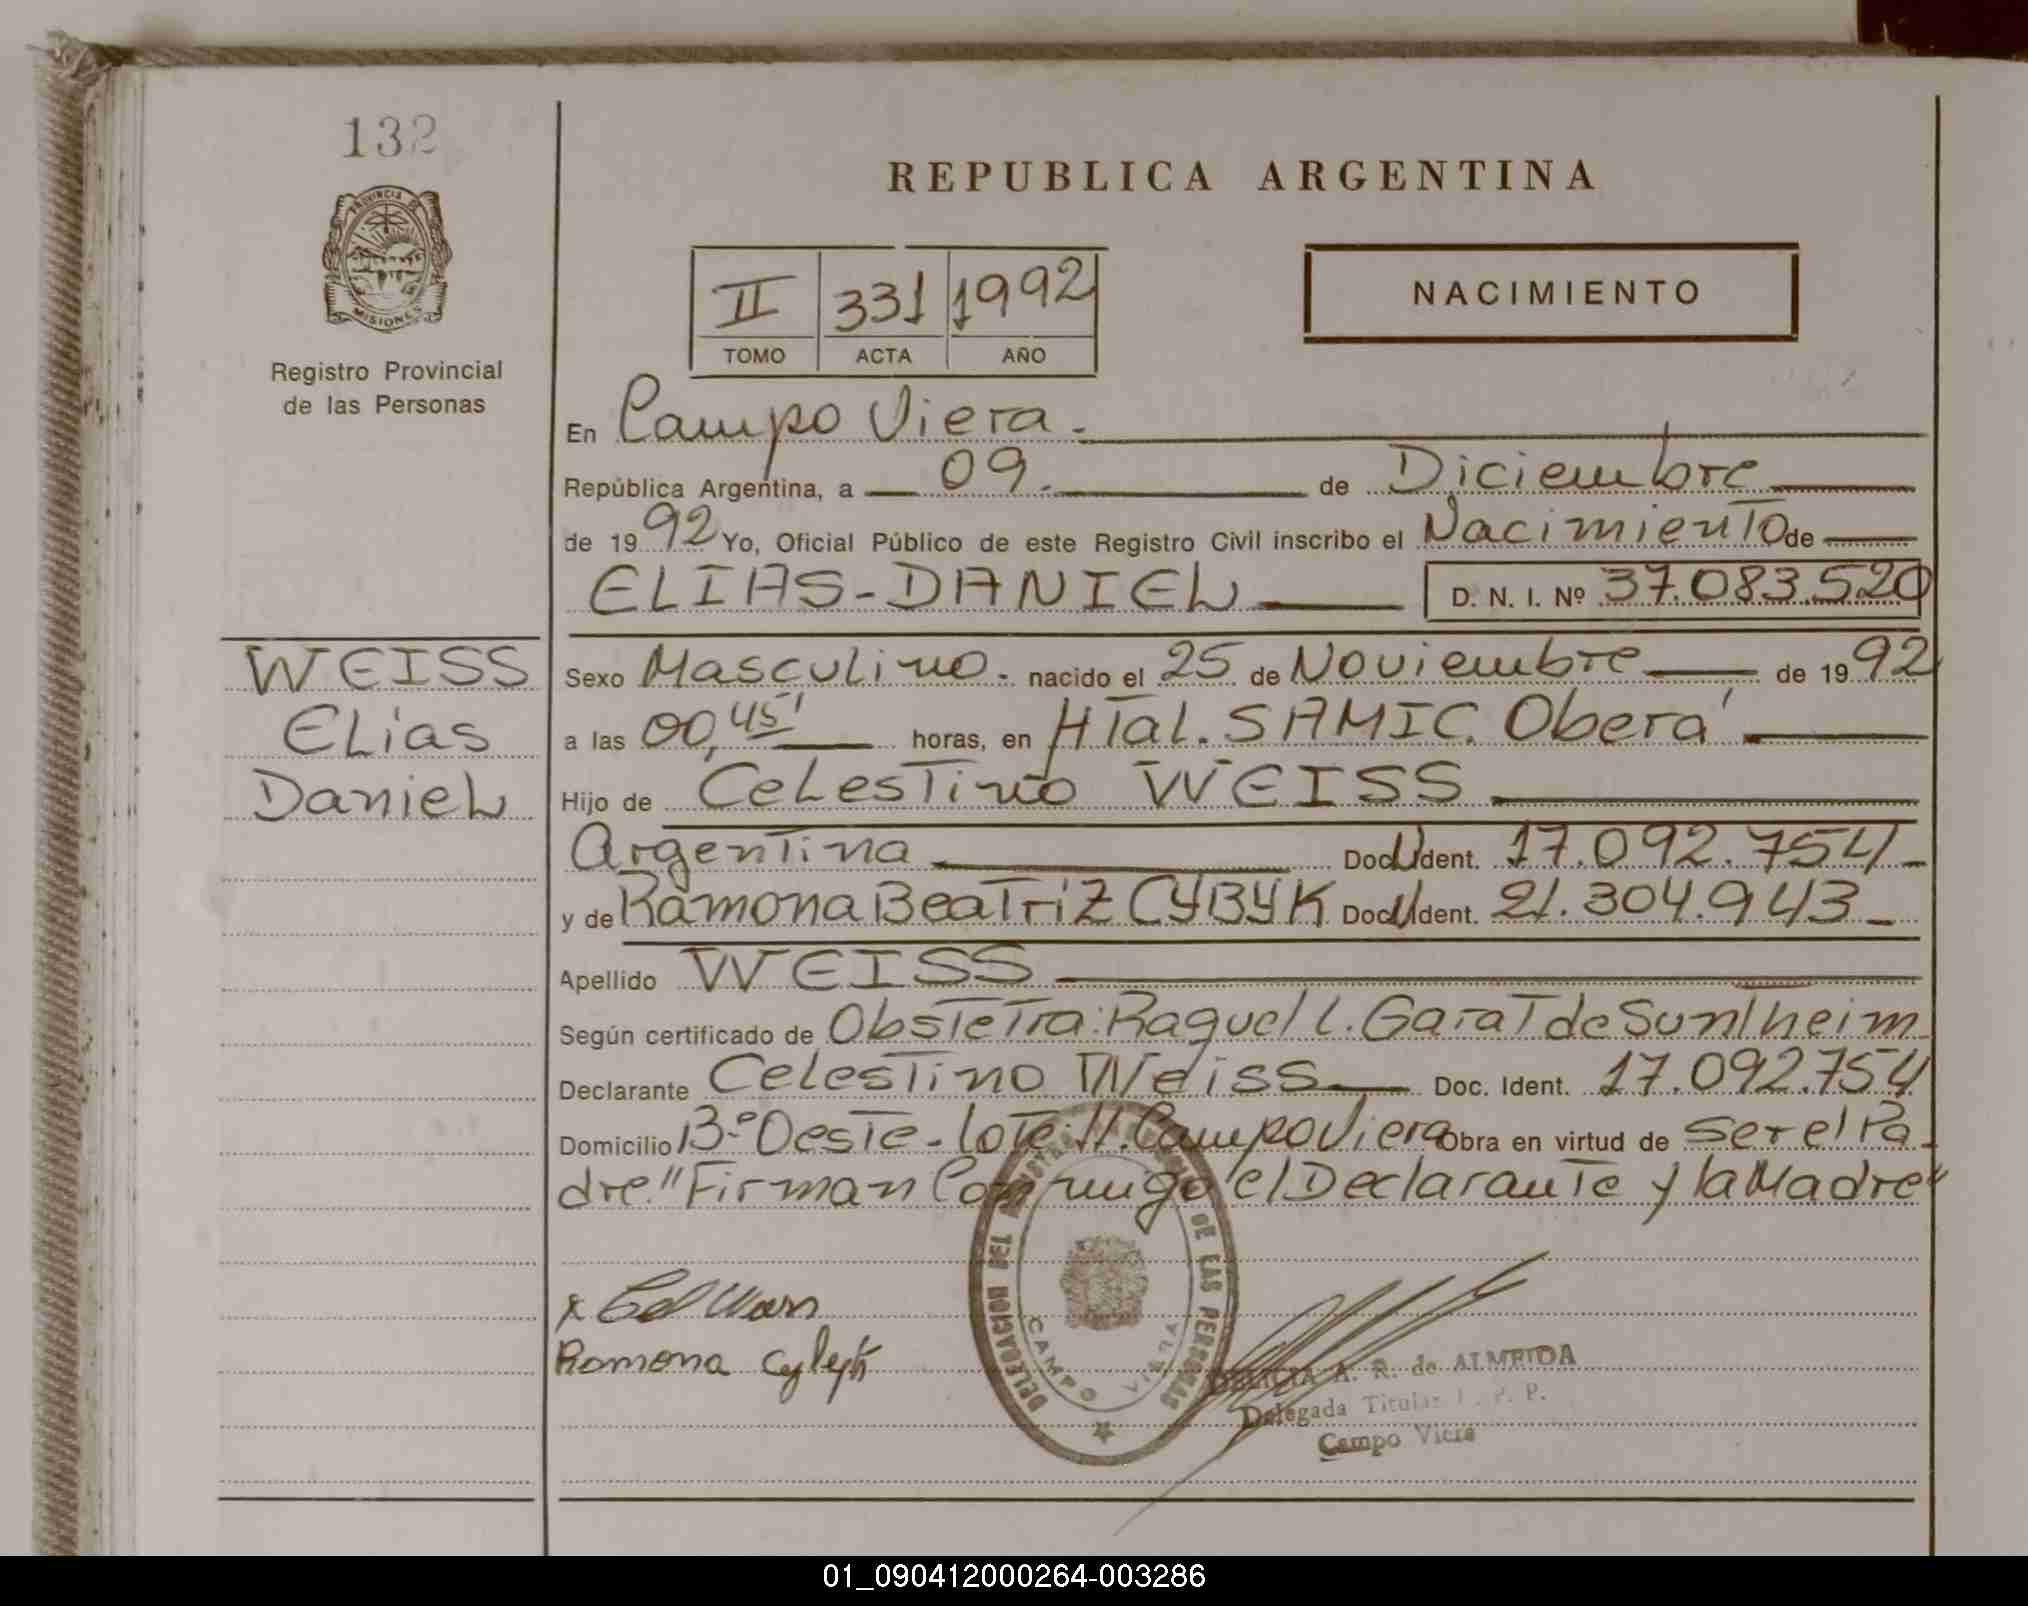 132
PROVINCIA DE
MISIONES
Registro Provincial
de las Personas
REPUBLICA ARGENTINA
II 331 1992
TOMO ACTA AÑO
NACIMIENTO
En Campo Viera.
República Argentina, a 09. de Diciembre
de 1992 Yo, Oficial Público de este Registro Civil inscribo el Nacimiento de
ELIAS-DANIEL D. N. I. Nº 37.083.520
WEISS
Elias
Daniel
Sexo Masculino. nacido el 25 de Noviembre de 1992
a las 00,45' horas, en HTal. SAMIC. Oberá
Hijo de Celestino WEISS
Argentina Doc. Ident. 17.092.754
y de Ramona Beatriz CYBYK Doc. Ident. 21.304.943
Apellido WEISS
Según certificado de Obstetra: Raquel L. Garat de Suntheim
Declarante Celestino Weiss Doc. Ident. 17.092.754
Domicilio B.º Oeste-Lote: 11. Campo Viera Obra en virtud de ser el Pa-
dre. "Firman Conmigo el Declarante y la Madre"
x
Ramona
DELEGACION DEL REGISTRO DE LAS PERSONAS
CAMPO VIERA
DELICIA A. R. de ALMEIDA
Delegada Titular R. P. P.
Campo Viera
01_090412000264-003286